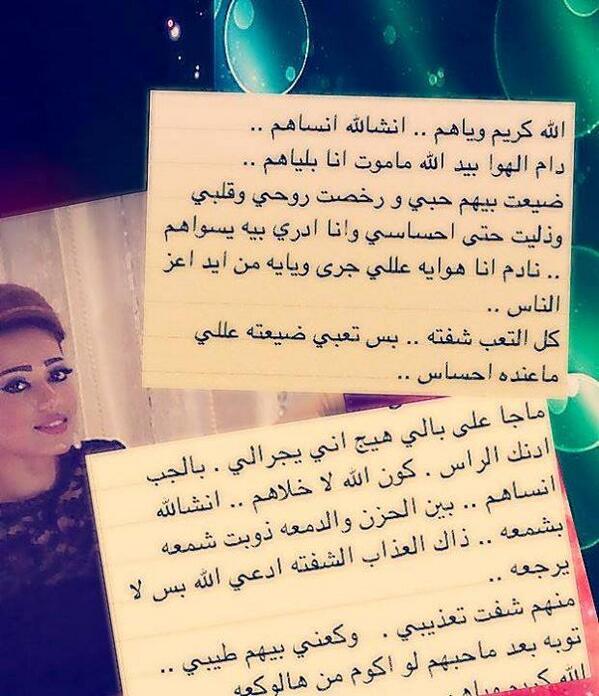 الله كريم وياهم .. انشالله انساهم ..
دام الهوا بيد الله ماموت انا بلياهم ..
ضيعت بيهم حبي و رخصت روحي وقلبي
وذليت حتى احساسي وانا ادري بيه يسواهم
.. نادم انا هوايه عللي جرى ويايه من ايد اعز
الناس ..
كل التعب شفته .. بس تعبي ضيعته عللي
ماعنده احساس ..
ماجا على بالي هيج اني يجرالي . بالجب
ادنك الراس . كون الله لا خلاهم .. انشالله
انساهم .. بين الحزن والدمعه ذوبت شمعه
بشمعه .. ذاك العذاب الشفته ادعي الله بس لا
يرجعه ..
منهم شفت تعذيبي . وكعني بيهم طيبي ..
توبه بعد ماحبهم لو اكوم من هالوكعه
الله كريم وياهم